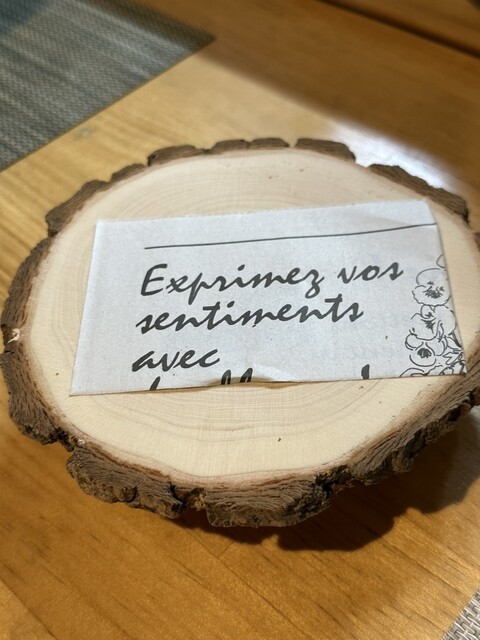 Exprimez vos
sentiments
avec